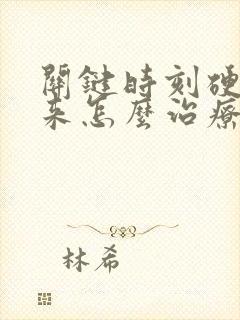 關鍵時刻硬
来怎麼治療
林希